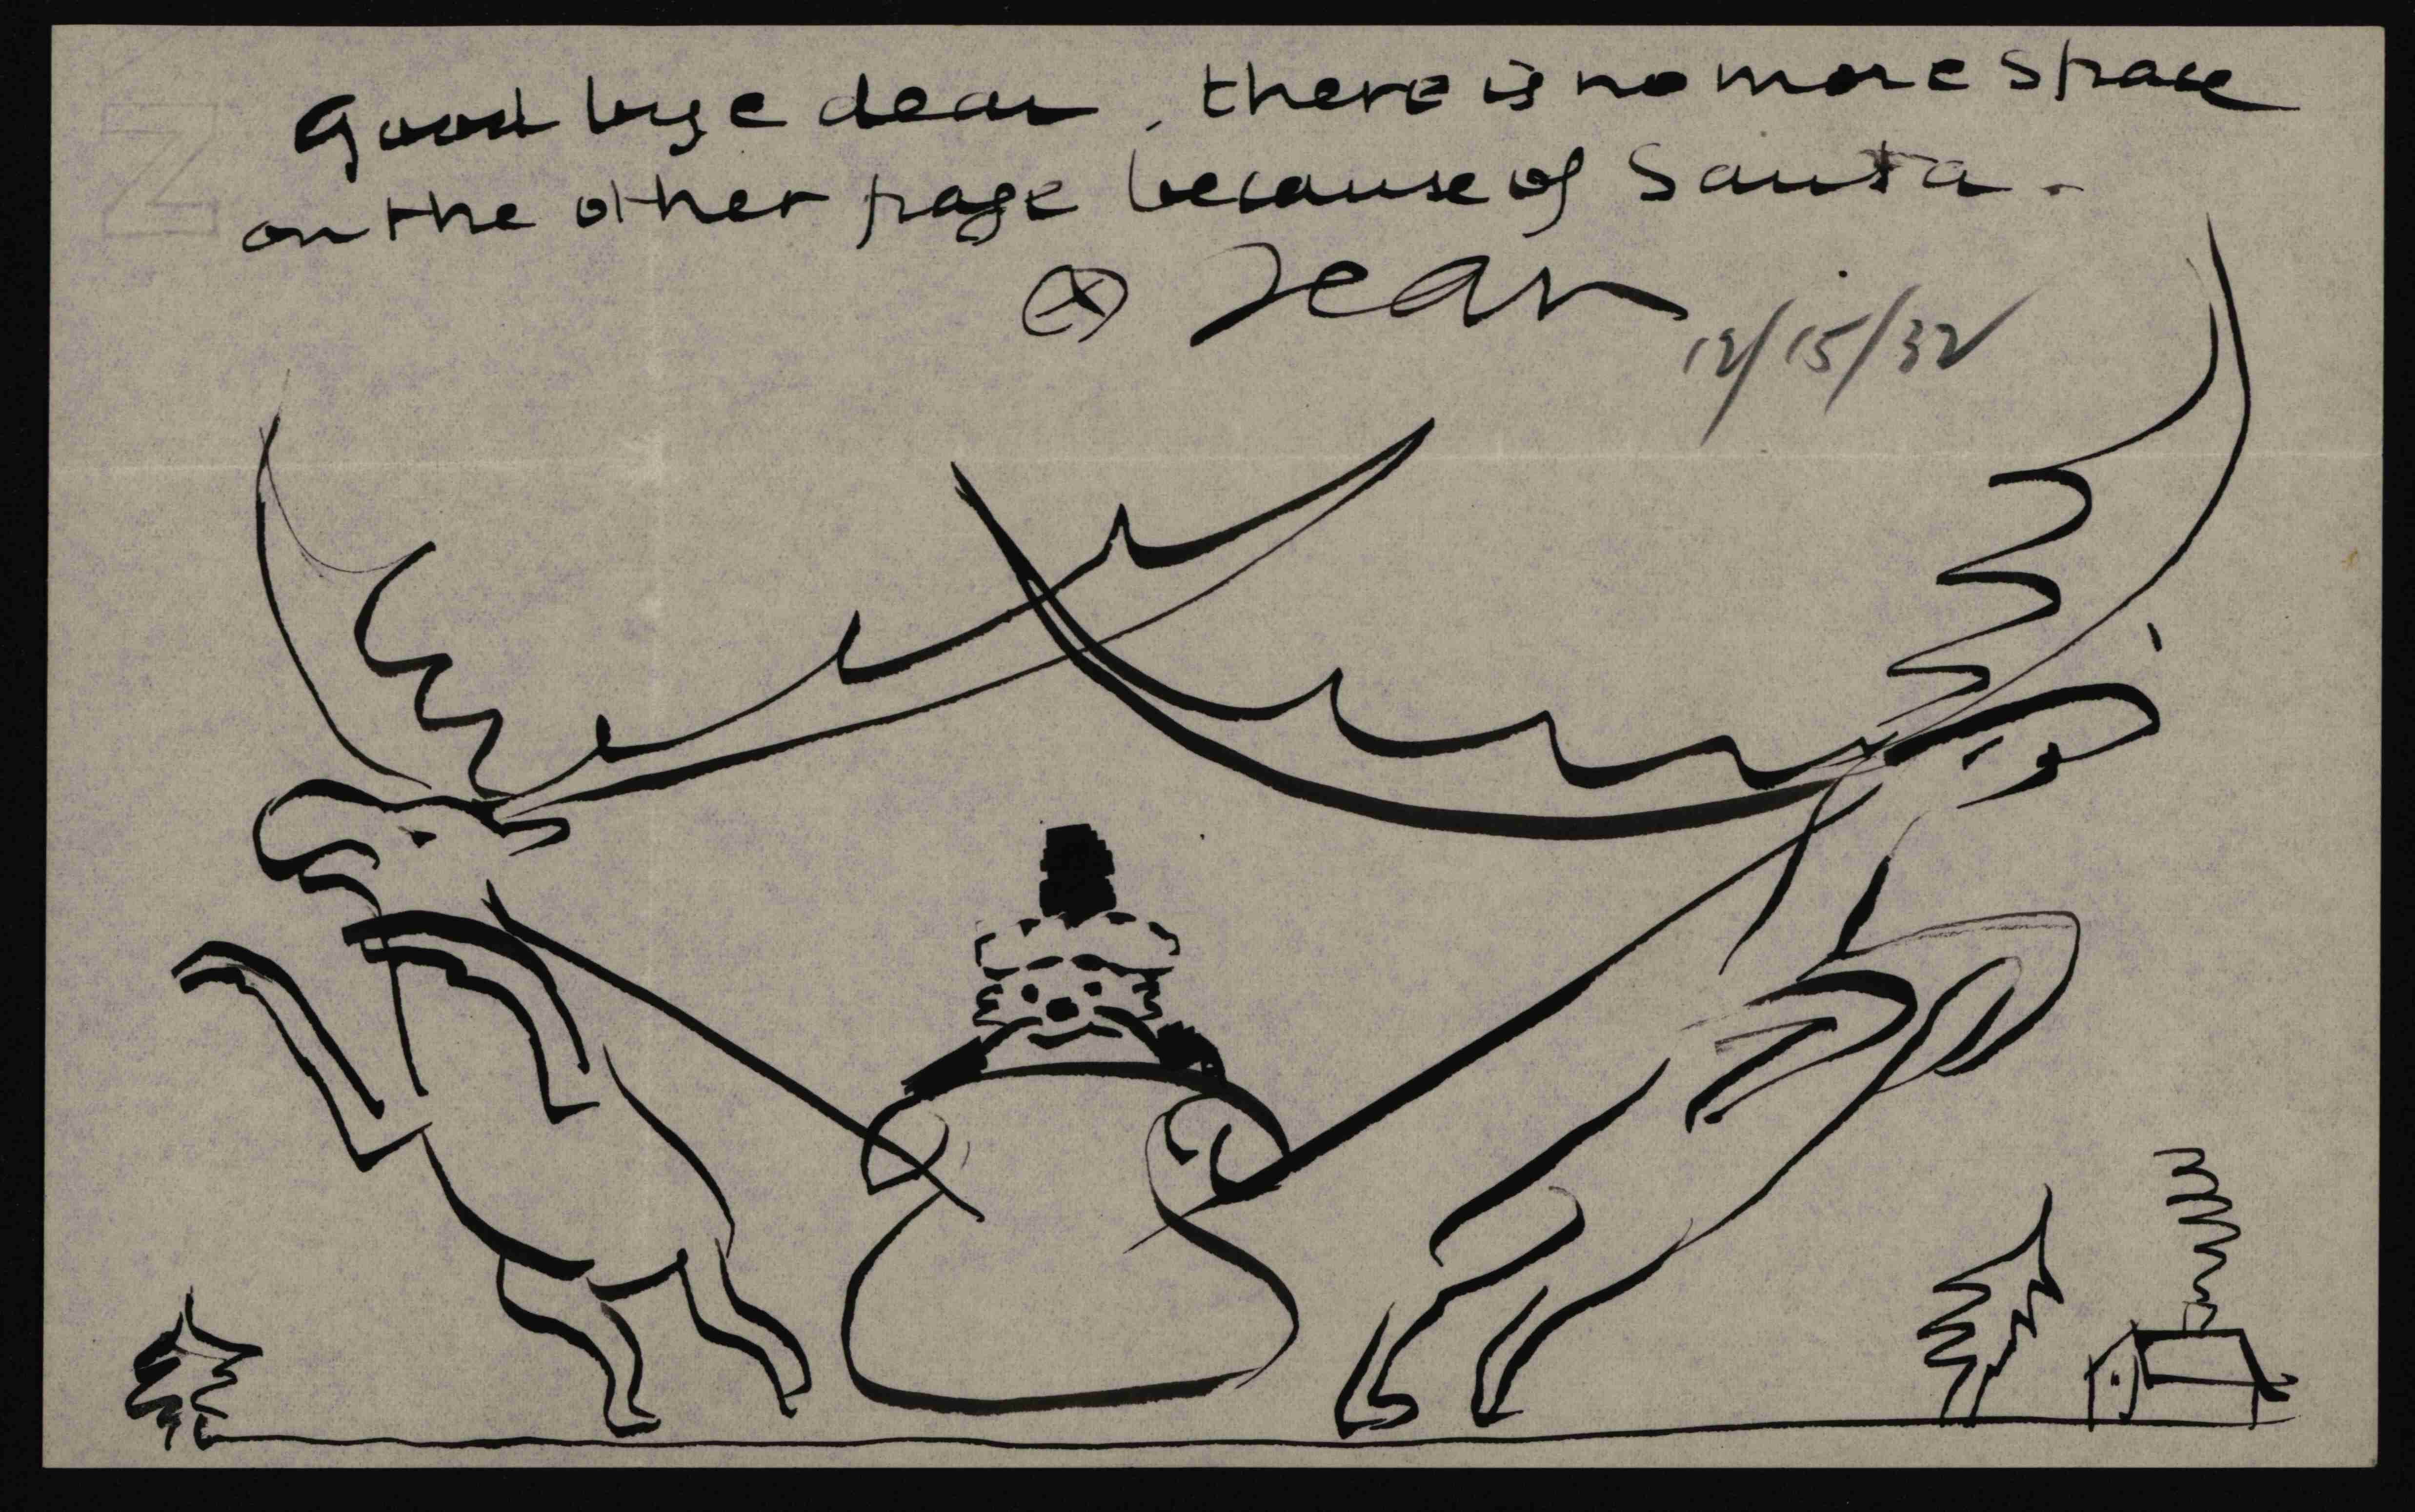 Good bye dear, there is no more space
on the other page because of Santa.
ⓧ Jean
12/15/32